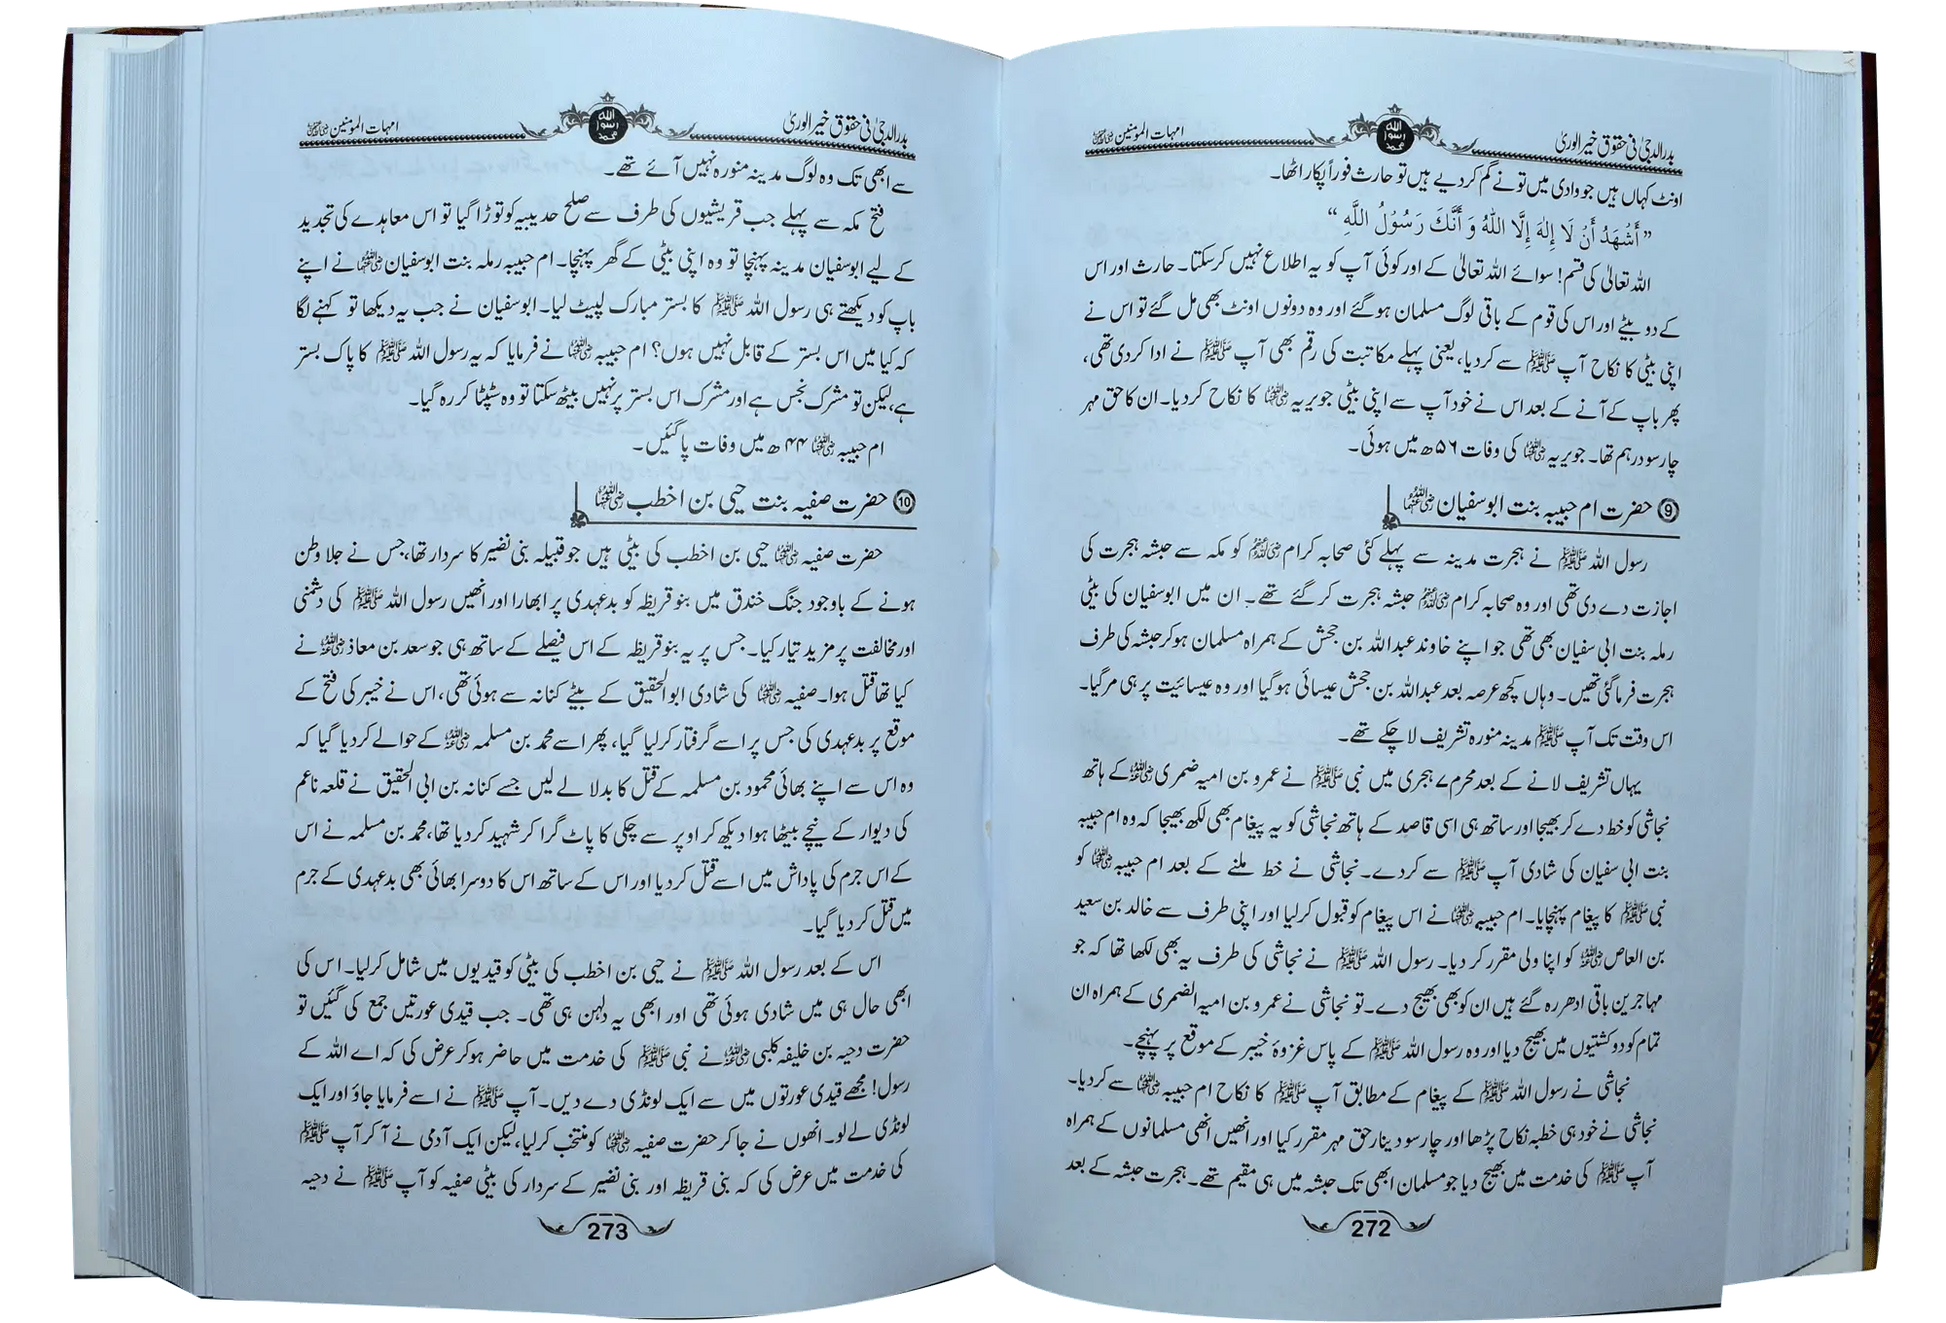 بدرالدجیٰ فی حقوق خیر الوریٰ
الله رسول محمد
امہات المؤمنین رضی اللہ عنہن
اونٹ کہاں ہیں جو وادی میں تو نے گم کر دیے ہیں تو حارث فوراً پکار اٹھا۔
”أَشْهَدُ أَنْ لَا إِلٰهَ إِلَّا اللّٰهُ وَ أَنَّكَ رَسُوْلُ اللَّهِ“
اللہ تعالیٰ کی قسم! سوائے اللہ تعالیٰ کے اور کوئی آپ کو یہ اطلاع نہیں کر سکتا۔ حارث اور اس
کے دو بیٹے اور اس کی قوم کے باقی لوگ مسلمان ہو گئے اور وہ دونوں اونٹ بھی مل گئے تو اس نے
اپنی بیٹی کا نکاح آپ ﷺ سے کر دیا، یعنی پہلے مکاتبت کی رقم بھی آپ ﷺ نے ادا کر دی تھی،
پھر باپ کے آنے کے بعد اس نے خود آپ سے اپنی بیٹی جویریہ رضی اللہ عنہا کا نکاح کر دیا۔ ان کا حق مہر
چار سو درہم تھا۔ جویریہ رضی اللہ عنہا کی وفات ۵۶ھ میں ہوئی۔
⑨ حضرت ام حبیبہ بنت ابو سفیان رضی اللہ عنہا
رسول اللہ ﷺ نے ہجرت مدینہ سے پہلے کئی صحابہ کرام رضی اللہ عنہم کو مکہ سے حبشہ ہجرت کی
اجازت دے دی تھی اور وہ صحابہ کرام رضی اللہ عنہم حبشہ ہجرت کر گئے تھے۔ ان میں ابو سفیان کی بیٹی
رملہ بنت ابی سفیان بھی تھی جو اپنے خاوند عبداللہ بن جحش کے ہمراہ مسلمان ہو کر حبشہ کی طرف
ہجرت فرما گئی تھیں۔ وہاں کچھ عرصہ بعد عبداللہ بن جحش عیسائی ہو گیا اور وہ عیسائیت پر ہی مر گیا۔
اس وقت تک آپ ﷺ مدینہ منورہ تشریف لا چکے تھے۔
یہاں تشریف لانے کے بعد محرم ۷ ہجری میں نبی ﷺ نے عمرو بن امیہ ضمری رضی اللہ عنہ کے ہاتھ
نجاشی کو خط دے کر بھیجا اور ساتھ ہی اسی قاصد کے ہاتھ نجاشی کو یہ پیغام بھی لکھ بھیجا کہ وہ ام حبیبہ
بنت ابی سفیان کی شادی آپ ﷺ سے کر دے۔ نجاشی نے خط ملنے کے بعد ام حبیبہ رضی اللہ عنہا کو
نبی ﷺ کا پیغام پہنچایا۔ ام حبیبہ رضی اللہ عنہا نے اس پیغام کو قبول کر لیا اور اپنی طرف سے خالد بن سعید
بن العاص رضی اللہ عنہ کو اپنا ولی مقرر کر دیا۔ رسول اللہ ﷺ نے نجاشی کی طرف یہ بھی لکھا تھا کہ جو
مہاجرین باقی ادھر رہ گئے ہیں ان کو بھی بھیج دے۔ تو نجاشی نے عمرو بن امیہ الضمری کے ہمراہ ان
تمام کو دو کشتیوں میں بھیج دیا اور وہ رسول اللہ ﷺ کے پاس غزوۂ خیبر کے موقع پر پہنچے۔
نجاشی نے رسول اللہ ﷺ کے پیغام کے مطابق آپ ﷺ کا نکاح ام حبیبہ رضی اللہ عنہا سے کر دیا۔
نجاشی نے خود ہی خطبہ نکاح پڑھا اور چار سو دینار حق مہر مقرر کیا اور انھیں انھی مسلمانوں کے ہمراہ
آپ ﷺ کی خدمت میں بھیج دیا جو مسلمان ابھی تک حبشہ میں ہی مقیم تھے۔ ہجرت حبشہ کے بعد
272
بدرالدجیٰ فی حقوق خیر الوریٰ
الله رسول محمد
امہات المؤمنین رضی اللہ عنہن
سے ابھی تک وہ لوگ مدینہ منورہ نہیں آئے تھے۔
فتح مکہ سے پہلے جب قریشیوں کی طرف سے صلح حدیبیہ کو توڑا گیا تو اس معاہدے کی تجدید
کے لیے ابو سفیان مدینہ پہنچا تو وہ اپنی بیٹی کے گھر پہنچا۔ ام حبیبہ رملہ بنت ابو سفیان رضی اللہ عنہا نے اپنے
باپ کو دیکھتے ہی رسول اللہ ﷺ کا بستر مبارک لپیٹ لیا۔ ابو سفیان نے جب یہ دیکھا تو کہنے لگا
کہ کیا میں اس بستر کے قابل نہیں ہوں؟ ام حبیبہ رضی اللہ عنہا نے فرمایا کہ یہ رسول اللہ ﷺ کا پاک بستر
ہے، لیکن تو مشرک نجس ہے اور مشرک اس بستر پر نہیں بیٹھ سکتا تو وہ سٹپٹا کر رہ گیا۔
ام حبیبہ رضی اللہ عنہا ۴۴ھ میں وفات پا گئیں۔
⑩ حضرت صفیہ بنت حیی بن اخطب رضی اللہ عنہا
حضرت صفیہ رضی اللہ عنہا حیی بن اخطب کی بیٹی ہیں جو قبیلہ بنی نضیر کا سردار تھا، جس نے جلا وطن
ہونے کے باوجود جنگ خندق میں بنو قریظہ کو بدعہدی پر ابھارا اور انھیں رسول اللہ ﷺ کی دشمنی
اور مخالفت پر مزید تیار کیا۔ جس پر یہ بنو قریظہ کے اس فیصلے کے ساتھ ہی جو سعد بن معاذ رضی اللہ عنہ نے
کیا تھا قتل ہوا۔ صفیہ رضی اللہ عنہا کی شادی ابو الحقیق کے بیٹے کنانہ سے ہوئی تھی، اس نے خیبر کی فتح کے
موقع پر بدعہدی کی جس پر اسے گرفتار کر لیا گیا، پھر اسے محمد بن مسلمہ رضی اللہ عنہ کے حوالے کر دیا گیا کہ
وہ اس سے اپنے بھائی محمود بن مسلمہ کے قتل کا بدلا لے لیں جسے کنانہ بن ابی الحقیق نے قلعہ ناعم
کی دیوار کے نیچے بیٹھا ہوا دیکھ کر اوپر سے چکی کا پاٹ گرا کر شہید کر دیا تھا، محمد بن مسلمہ نے اس
کے اس جرم کی پاداش میں اسے قتل کر دیا اور اس کے ساتھ اس کا دوسرا بھائی بھی بدعہدی کے جرم
میں قتل کر دیا گیا۔
اس کے بعد رسول اللہ ﷺ نے حیی بن اخطب کی بیٹی کو قیدیوں میں شامل کر لیا۔ اس کی
ابھی حال ہی میں شادی ہوئی تھی اور ابھی یہ دلہن ہی تھی۔ جب قیدی عورتیں جمع کی گئیں تو
حضرت دحیہ بن خلیفہ کلبی رضی اللہ عنہ نے نبی ﷺ کی خدمت میں حاضر ہو کر عرض کی کہ اے اللہ کے
رسول! مجھے قیدی عورتوں میں سے ایک لونڈی دے دیں۔ آپ ﷺ نے اسے فرمایا جاؤ اور ایک
لونڈی لے لو۔ انھوں نے جا کر حضرت صفیہ رضی اللہ عنہا کو منتخب کر لیا، لیکن ایک آدمی نے آ کر آپ ﷺ
کی خدمت میں عرض کی کہ بنی قریظہ اور بنی نضیر کے سردار کی بیٹی صفیہ کو آپ ﷺ نے دحیہ
273